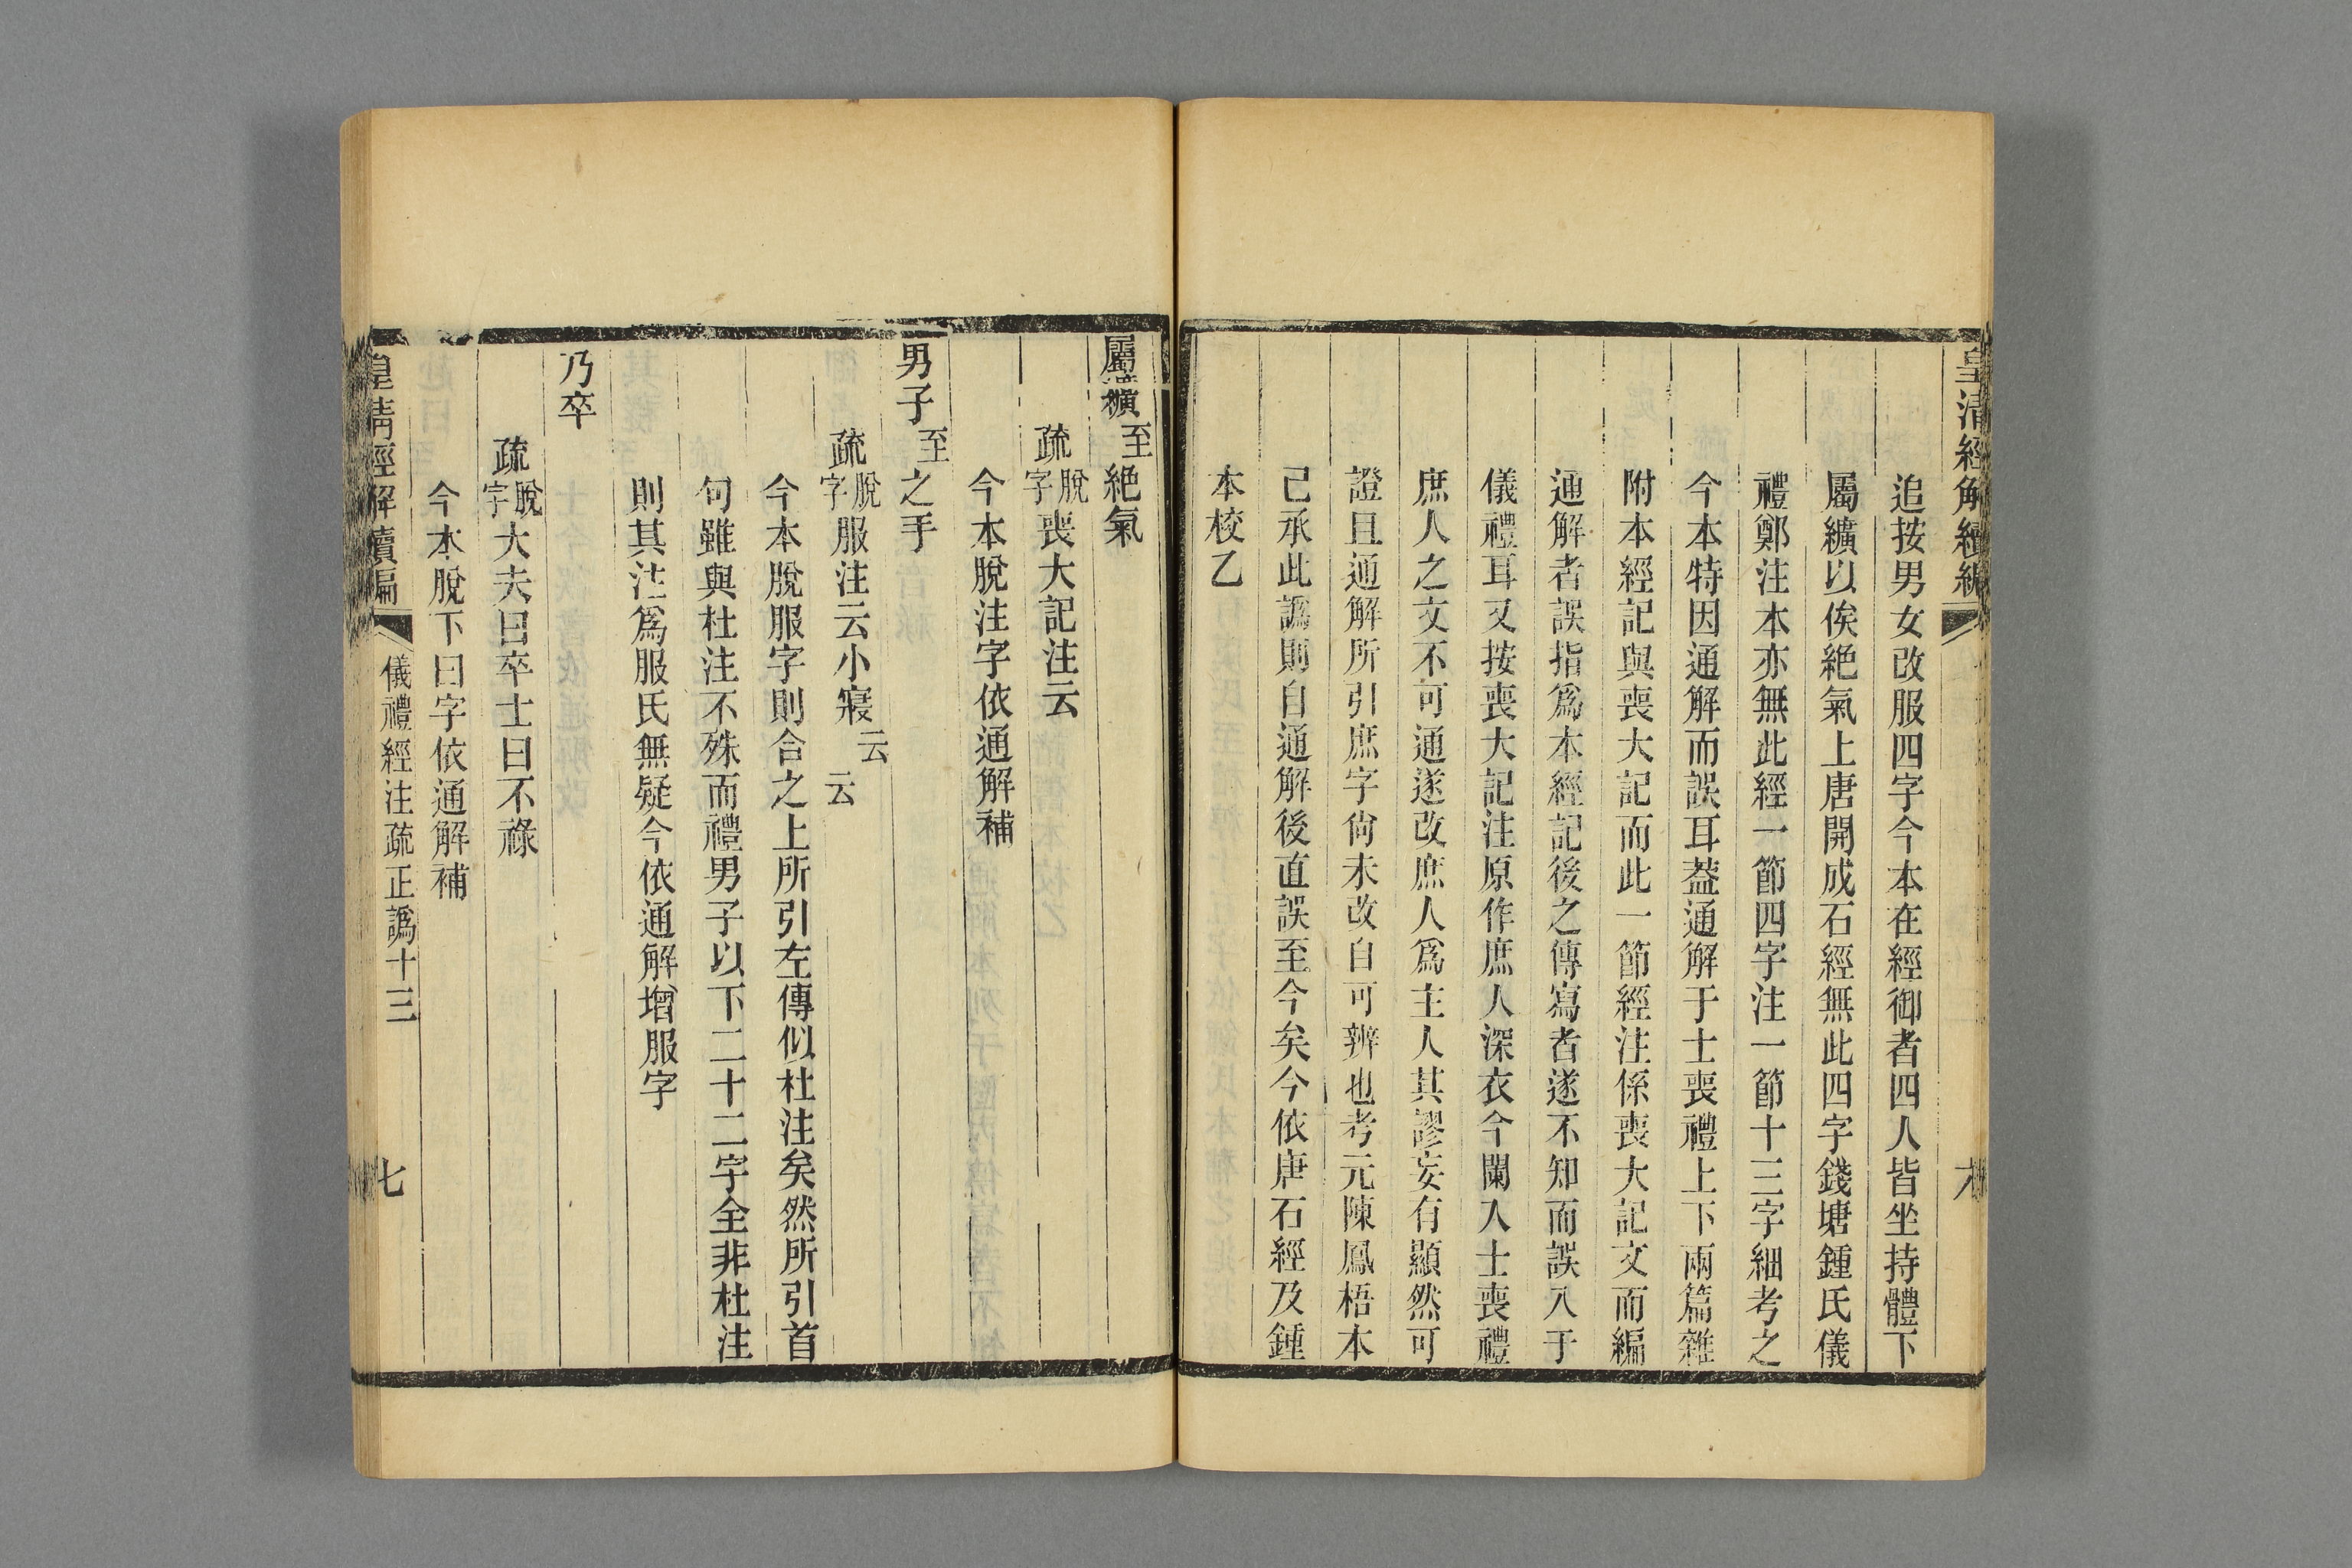 皇清經解續編
六
追按男女改服四字今本在經御者四人皆坐持體下
屬纊以俟絕氣上唐開成石經無此四字錢塘鍾氏儀
禮鄭注本亦無此經一節四字注一節十三字細考之
今本特因通解而誤耳葢通解于士喪禮上下兩篇雜
附本經記與喪大記而此一節經注係喪大記文而編
通解者誤指爲本經記後之傳寫者遂不知而誤入于
儀禮耳又按喪大記注原作庶人深衣今闌入士喪禮
庶人之文不可通遂改庶人爲主人其謬妄有顯然可
證且通解所引庶字尙未改白可辨也考元陳鳳梧本
已承此譌則自通解後直誤至今矣今依唐石經及鍾
本校乙
屬纊至絕氣
疏脫字喪大記注云
今本脫注字依通解補
男子至之手
疏脫字服注云小寢云云
今本脫服字則合之上所引左傳似杜注矣然所引首
句雖與杜注不殊而禮男子以下二十二字全非杜注
則其注爲服氏無疑今依通解增服字
乃卒
疏脫字大夫曰卒士曰不祿
今本脫下曰字依通解補
皇清經解續編
儀禮經注疏正譌十三
七